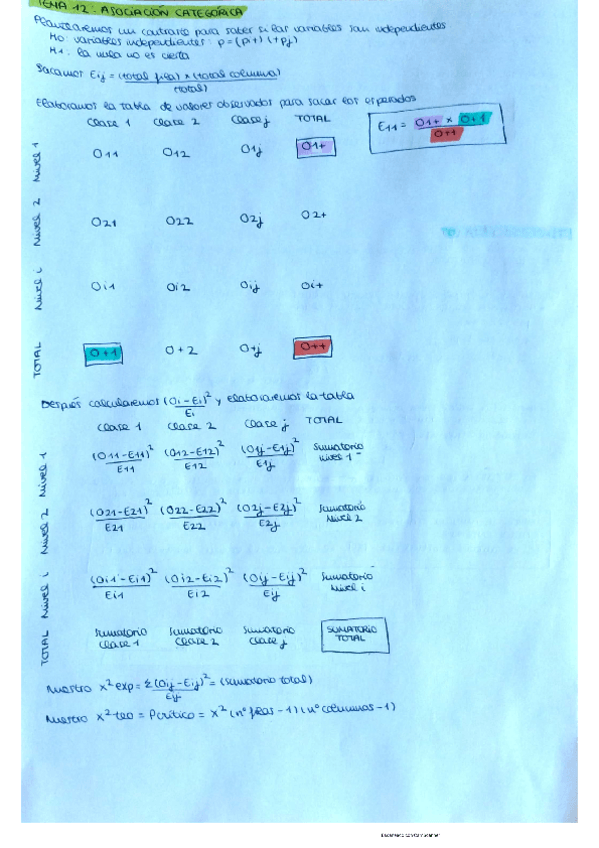 TEMA 12: ASOCIACIÓN CATEGÓRICA
Plantearemos un contraste para saber si las variables son independientes
H0: variables independientes: p=(pi+)(+pj)
H1: la nula no es cierta
Sacamos Eij = (total fila) x (total columna)
(total)
Elaboramos la tabla de valores observados para sacar los esperados
clase 1 clase 2 clase j TOTAL
E11 = O1+ x O+1
O++
Nivel 1 O11 O12 O1j O1+
Nivel 2 O21 O22 O2j O2+
Nivel i Oi1 Oi2 Oij Oi+
TOTAL O+1 O+2 O+j O++
Después calcularemos (Oi-Ei)² y elaboraremos la tabla
Ei
clase 1 clase 2 clase j TOTAL
Nivel 1 (O11-E11)² (O12-E12)² (O1j-E1j)² sumatorio
E11 E12 E1j nivel 1
Nivel 2 (O21-E21)² (O22-E22)² (O2j-E2j)² sumatorio
E21 E22 E2j nivel 2
Nivel i (Oi1-Ei1)² (Oi2-Ei2)² (Oij-Eij)² sumatorio
Ei1 Ei2 Eij nivel i
TOTAL sumatorio sumatorio sumatorio SUMATORIO
clase 1 clase 2 clase j TOTAL
Nuestro x²exp = Σ (Oij-Eij)² = (sumatorio total)
Eij
Nuestro x²teo = Pcrítico = x² (nº filas-1)(nº columnas-1)